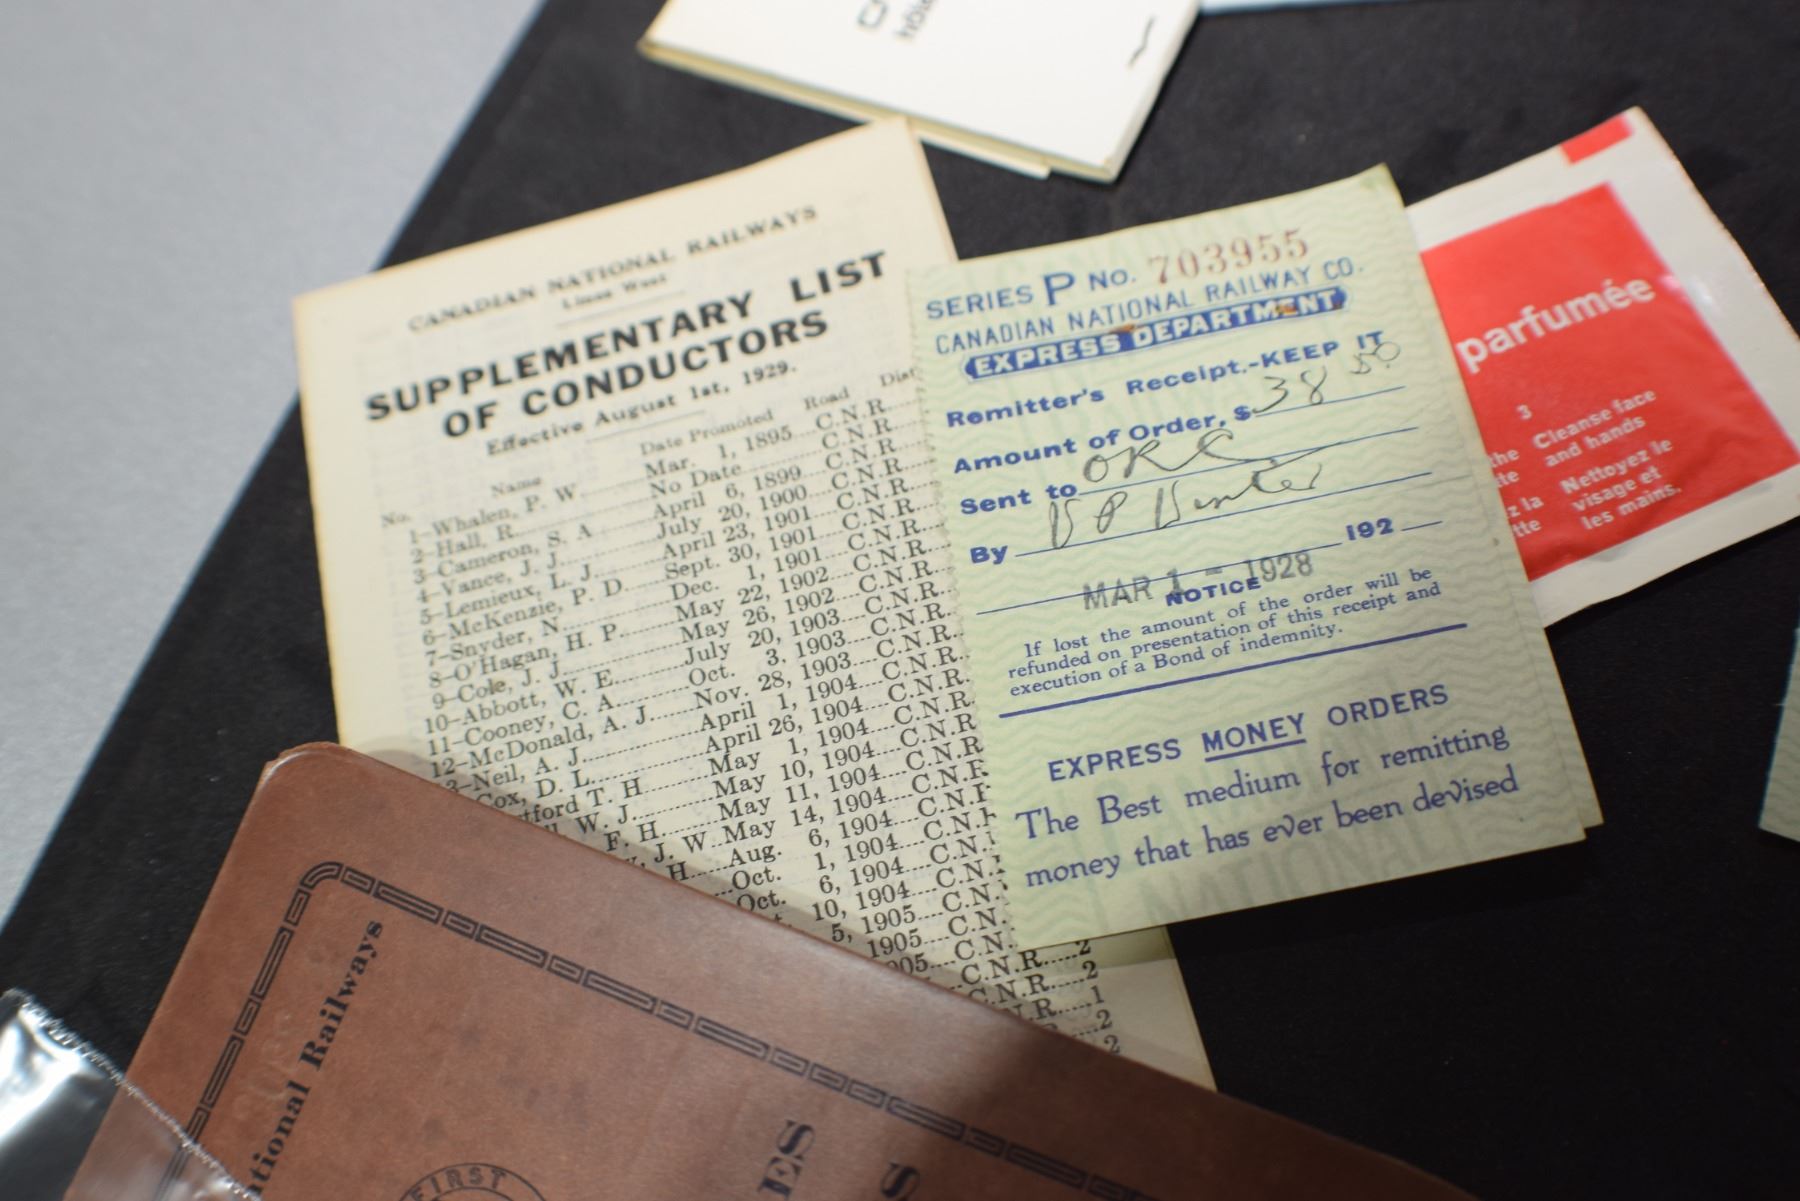 CANADIAN NATIONAL RAILWAYS
Lines West
SUPPLEMENTARY LIST
OF CONDUCTORS
Effective August 1st, 1929.
No. Name Date Promoted Road Dist
1—Whalen, P. W. Mar. 1, 1895 C.N.R.
2—Hall, R. No Date C.N.R.
3—Cameron, S. A. April 6, 1899 C.N.R.
4—Vance, J. J. July 20, 1900 C.N.R.
5—Lemieux, L. J. April 23, 1901 C.N.R.
6—McKenzie, P. D. Sept. 30, 1901 C.N.R.
7—Snyder, N. Dec. 1, 1901 C.N.R.
8—O'Hagan, H. P. May 22, 1902 C.N.R.
9—Cole, J. J. May 26, 1902 C.N.R.
10—Abbott, W. E. July 20, 1903 C.N.R.
11—Cooney, C. A. Oct. 3, 1903 C.N.R.
12—McDonald, A. J. Nov. 28, 1903 C.N.R.
3—Neil, A. J. April 1, 1904 C.N.R.
Cox, D. L. April 26, 1904 C.N.R.
tford T. H. May 1, 1904 C.N.R.
W. J. May 10, 1904 C.N.R.
F. H. May 11, 1904 C.N.R.
J. W. May 14, 1904 C.N.R.
H. Aug. 6, 1904 C.N.
Oct. 1, 1904 C.N.
Oct. 6, 1904 C.N.
10, 1904 C.N.
5, 1905 C.N.
1905 C.N.
905 C.N.R. 2
C.N.R. 2
N.R. 1
R. 2
2
SERIES P No. 703955
CANADIAN NATIONAL RAILWAY CO.
EXPRESS DEPARTMENT
Remitter's Receipt.-KEEP IT
Amount of Order, $ 38 50
Sent to ORC
By
192
MAR 1 - 1928
NOTICE
If lost the amount of the order will be
refunded on presentation of this receipt and
execution of a Bond of indemnity.
EXPRESS MONEY ORDERS
The Best medium for remitting
money that has ever been devised
NATIONAL
parfumée
3
Cleanse face
and hands
Nettoyez le
visage et
les mains.
the
te
z la
tte
tional Railways
FIRST
ES
S